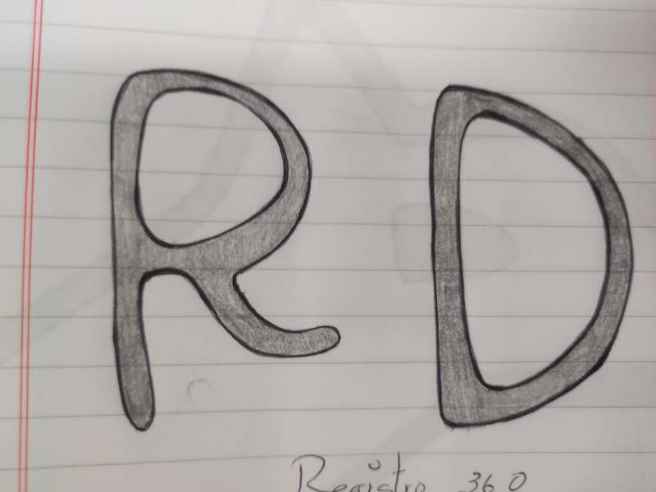 R D
Registro 360